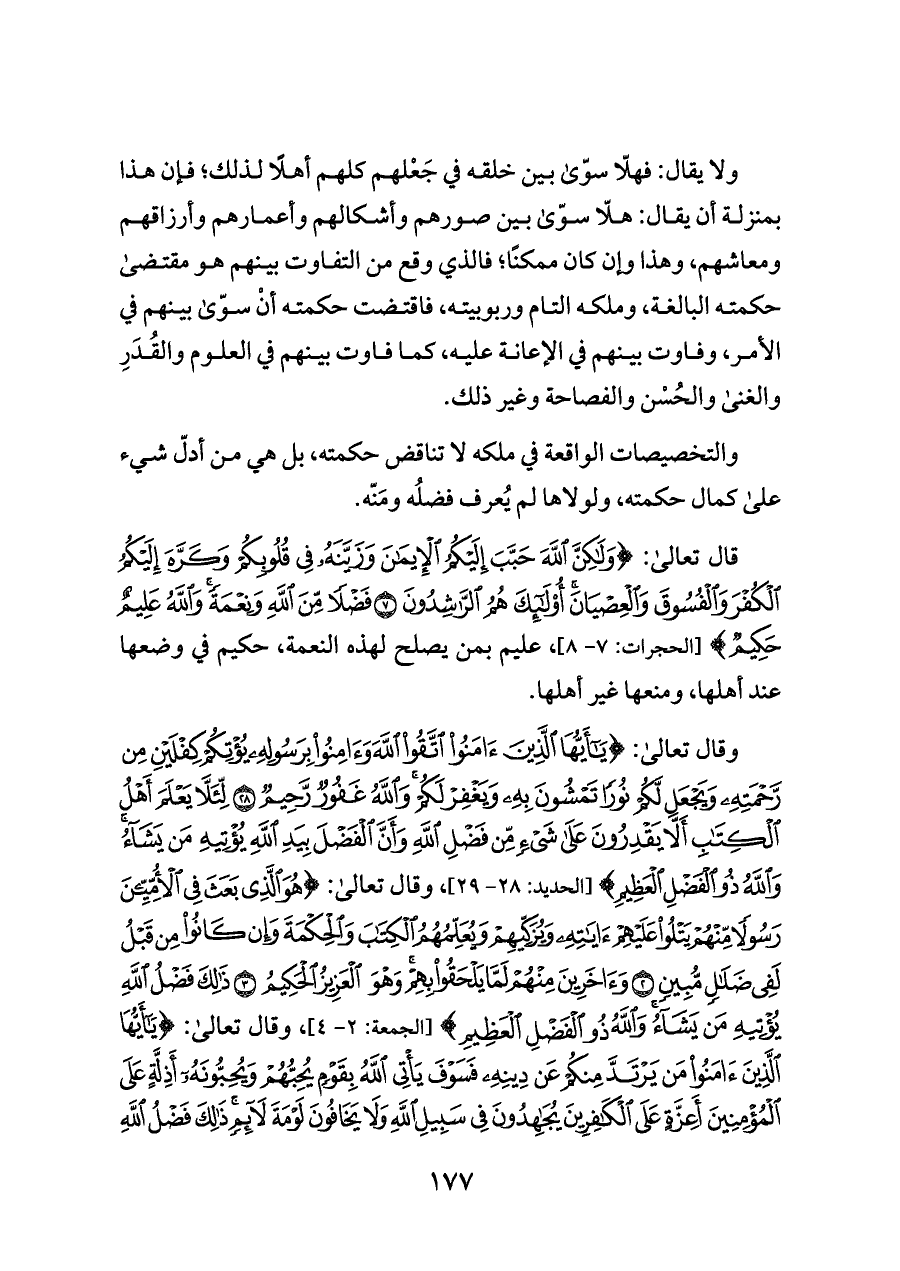 ولا يقال: فهلّا سوّىٰ بين خلقه في جَعْلهم كلهم أهلًا لذلك؛ فإن هذا
بمنزلة أن يقال: هلّا سوّىٰ بين صورهم وأشكالهم وأعمارهم وأرزاقهم
ومعاشهم، وهذا وإن كان ممكنًا؛ فالذي وقع من التفاوت بينهم هو مقتضىٰ
حكمته البالغة، وملكه التام وربوبيته، فاقتضت حكمته أنْ سوّىٰ بينهم في
الأمر، وفاوت بينهم في الإعانة عليه، كما فاوت بينهم في العلوم والقُدَرِ
والغنىٰ والحُسْن والفصاحة وغير ذلك.
والتخصيصات الواقعة في ملكه لا تناقض حكمته، بل هي من أدلّ شيء
علىٰ كمال حكمته، ولولاها لم يُعرف فضلُه ومَنّه.
قال تعالىٰ: ﴿وَلَٰكِنَّ ٱللَّهَ حَبَّبَ إِلَيْكُمُ ٱلْإِيمَٰنَ وَزَيَّنَهُۥ فِى قُلُوبِكُمْ وَكَرَّهَ إِلَيْكُمُ
ٱلْكُفْرَ وَٱلْفُسُوقَ وَٱلْعِصْيَانَ ۚ أُو۟لَٰٓئِكَ هُمُ ٱلرَّٰشِدُونَ ۝٧ فَضْلًا مِّنَ ٱللَّهِ وَنِعْمَةً ۚ وَٱللَّهُ عَلِيمٌ
حَكِيمٌ﴾ [الحجرات: ٧- ٨]، عليم بمن يصلح لهذه النعمة، حكيم في وضعها
عند أهلها، ومنعها غير أهلها.
وقال تعالىٰ: ﴿يَٰٓأَيُّهَا ٱلَّذِينَ ءَامَنُوا۟ ٱتَّقُوا۟ ٱللَّهَ وَءَامِنُوا۟ بِرَسُولِهِۦ يُؤْتِكُمْ كِفْلَيْنِ مِن
رَّحْمَتِهِۦ وَيَجْعَل لَّكُمْ نُورًا تَمْشُونَ بِهِۦ وَيَغْفِرْ لَكُمْ ۚ وَٱللَّهُ غَفُورٌ رَّحِيمٌ ۝٢٨ لِّئَلَّا يَعْلَمَ أَهْلُ
ٱلْكِتَٰبِ أَلَّا يَقْدِرُونَ عَلَىٰ شَىْءٍ مِّن فَضْلِ ٱللَّهِ وَأَنَّ ٱلْفَضْلَ بِيَدِ ٱللَّهِ يُؤْتِيهِ مَن يَشَآءُ ۚ
وَٱللَّهُ ذُو ٱلْفَضْلِ ٱلْعَظِيمِ﴾ [الحديد: ٢٨- ٢٩]، وقال تعالىٰ: ﴿هُوَ ٱلَّذِى بَعَثَ فِى ٱلْأُمِّيِّـۧنَ
رَسُولًا مِّنْهُمْ يَتْلُوا۟ عَلَيْهِمْ ءَايَٰتِهِۦ وَيُزَكِّيهِمْ وَيُعَلِّمُهُمُ ٱلْكِتَٰبَ وَٱلْحِكْمَةَ وَإِن كَانُوا۟ مِن قَبْلُ
لَفِى ضَلَٰلٍ مُّبِينٍ ۝٢ وَءَاخَرِينَ مِنْهُمْ لَمَّا يَلْحَقُوا۟ بِهِمْ ۚ وَهُوَ ٱلْعَزِيزُ ٱلْحَكِيمُ ۝٣ ذَٰلِكَ فَضْلُ ٱللَّهِ
يُؤْتِيهِ مَن يَشَآءُ ۚ وَٱللَّهُ ذُو ٱلْفَضْلِ ٱلْعَظِيمِ﴾ [الجمعة: ٢- ٤]، وقال تعالىٰ: ﴿يَٰٓأَيُّهَا
ٱلَّذِينَ ءَامَنُوا۟ مَن يَرْتَدَّ مِنكُمْ عَن دِينِهِۦ فَسَوْفَ يَأْتِى ٱللَّهُ بِقَوْمٍ يُحِبُّهُمْ وَيُحِبُّونَهُۥٓ أَذِلَّةٍ عَلَى
ٱلْمُؤْمِنِينَ أَعِزَّةٍ عَلَى ٱلْكَٰفِرِينَ يُجَٰهِدُونَ فِى سَبِيلِ ٱللَّهِ وَلَا يَخَافُونَ لَوْمَةَ لَآئِمٍ ۚ ذَٰلِكَ فَضْلُ ٱللَّهِ
١٧٧